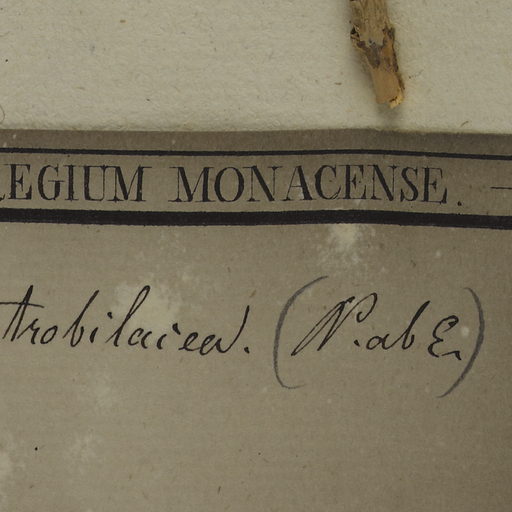 REGIUM MONACENSE. —
trobilacea. (N. ab E.)